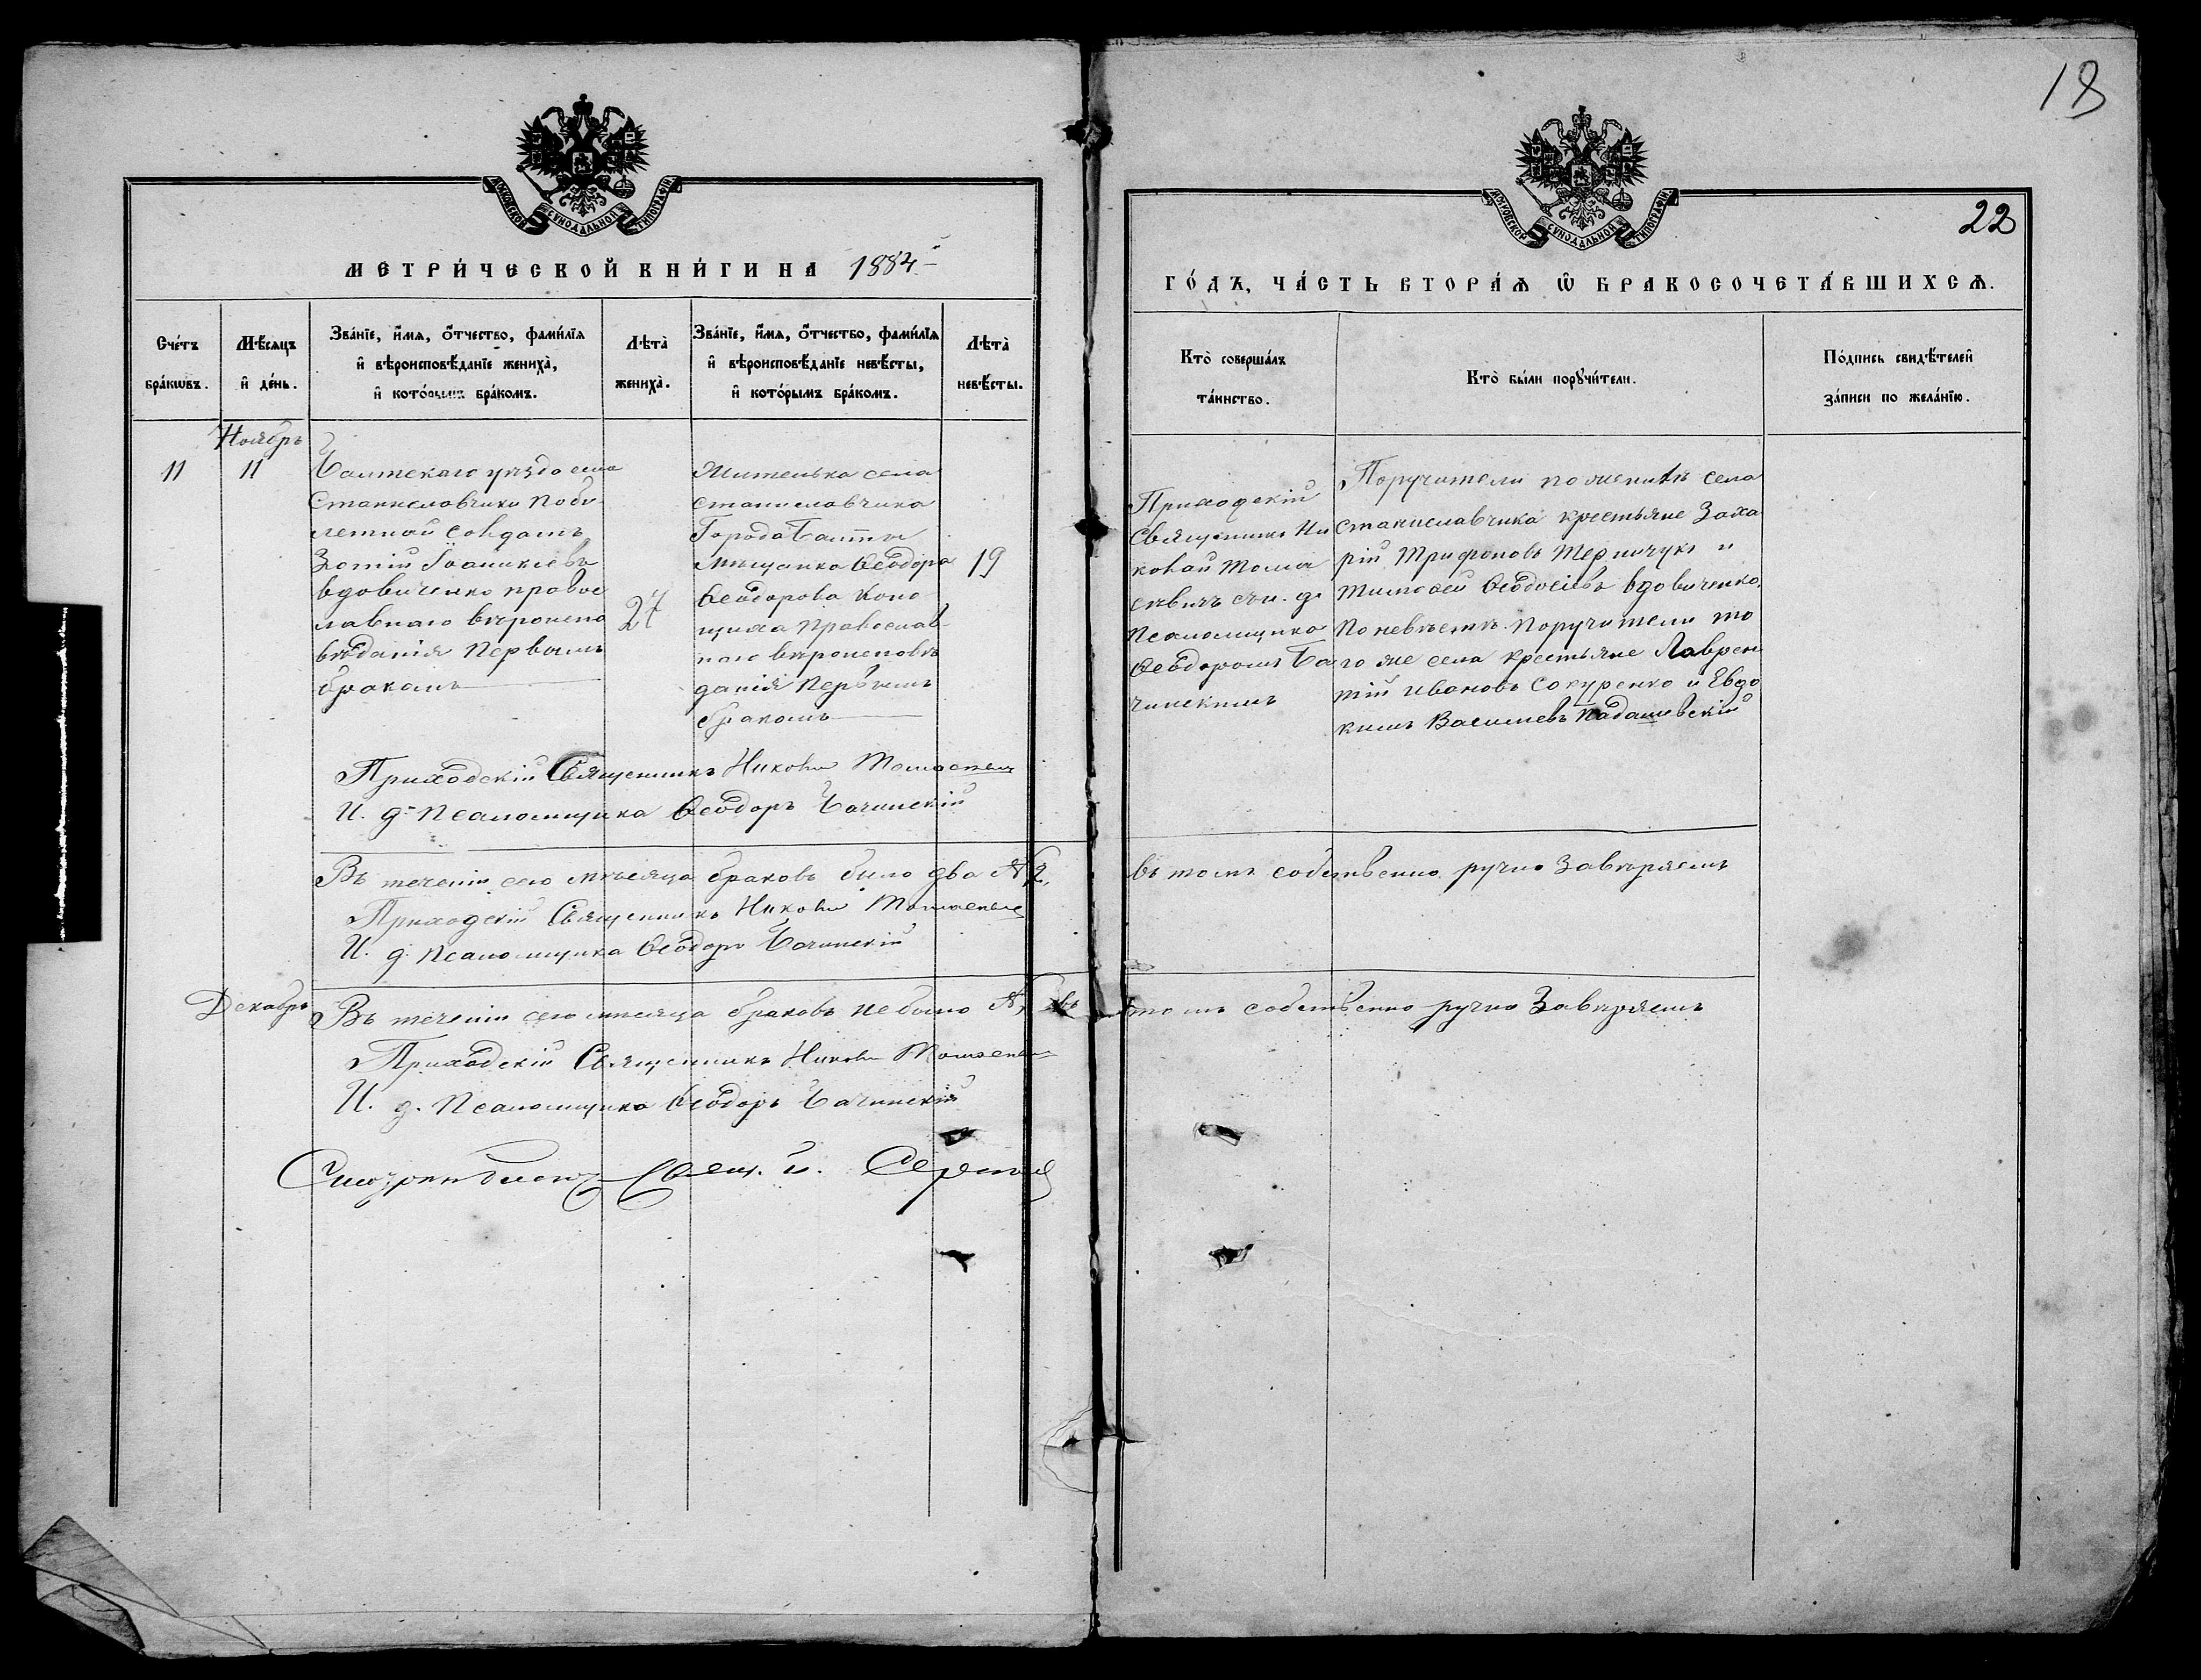 18
МОСКОВСКОЙ СѴНОДАЛЬНОЙ ТИПОГРАФІИ
МОСКОВСКОЙ СѴНОДАЛЬНОЙ ТИПОГРАФІИ
22
МЕТРИ́ЧЕСКОЙ КНИ́ГИ НА 1884
ГО́ДЪ, ЧА́СТЬ ВТОРА́Ѧ Ѽ БРАКОСОЧЕТА́ВШИХСѦ.
Сче́тъ
бра́кѡвъ.
Мѣ́сѧцъ
и҆ де́нь.
Зва́нїе, и҆́мѧ, о҆́тчество, фами́лїѧ
и҆ вѣроисповѣ́данїе жениха̀,
и҆ кото́рымъ бра́комъ.
Лѣта̀
жениха̀.
Зва́нїе, и҆́мѧ, о҆́тчество, фами́лїѧ
и҆ вѣроисповѣ́данїе невѣ́сты,
и҆ кото́рымъ бра́комъ.
Лѣта̀
невѣ́сты.
Кто̀ соверша́лъ
та́инство.
Кто̀ бы́ли порꙋчи́тели.
По́дпись свидѣ́телей
за́писи по жела́нїю.
Ноябрь
11
11
Балтскаго уѣзда села
Станиславчика Поби
летной Солдатъ
Зотій Іоаникіевъ
вдовиченко правос
лавнаго вѣроиспо
вѣданія Первымъ
бракомъ
27
Жителька села
станиславчика
Города Балты
мѣщанка Ѳеодора
Ѳеодорова Коно
Православ
наго вѣроисповѣ
данія Первымъ
бракомъ
19
Приходскій
Священникъ Ни
колай Тома
севичъ съ и. д.
Псаломщика
Ѳеодоромъ Ба
чинскимъ
Поручители по женихѣ села
станиславчика крестьяне Заха
рій Трифоновъ Терничукъ и
Тимофей Ѳеодосіевъ вдовиченко,
По невѣстѣ Поручители то
го же села крестьяне Лаврен
тій Ивановъ Сокуренко и Евдо
кимъ Василиевъ Кадашевскій
Приходскій Священникъ Николай Томасевичъ
И. д. Псаломщика Ѳеодоръ Бачинскій
Въ теченіи сего мѣсяца браковъ было два № 2, въ томъ собственно ручно Завѣряемъ
Приходскій Священникъ Николай Томасевичъ
И. д. Псаломщика Ѳеодоръ Бачинскій
Декабрь
Въ теченіи сего мѣсяца браковъ не было въ томъ собственно ручно Завѣряемъ
Приходскій Священникъ Николай Томасевичъ
И. д. Псаломщика Ѳеодоръ Бачинскій
Свящ.